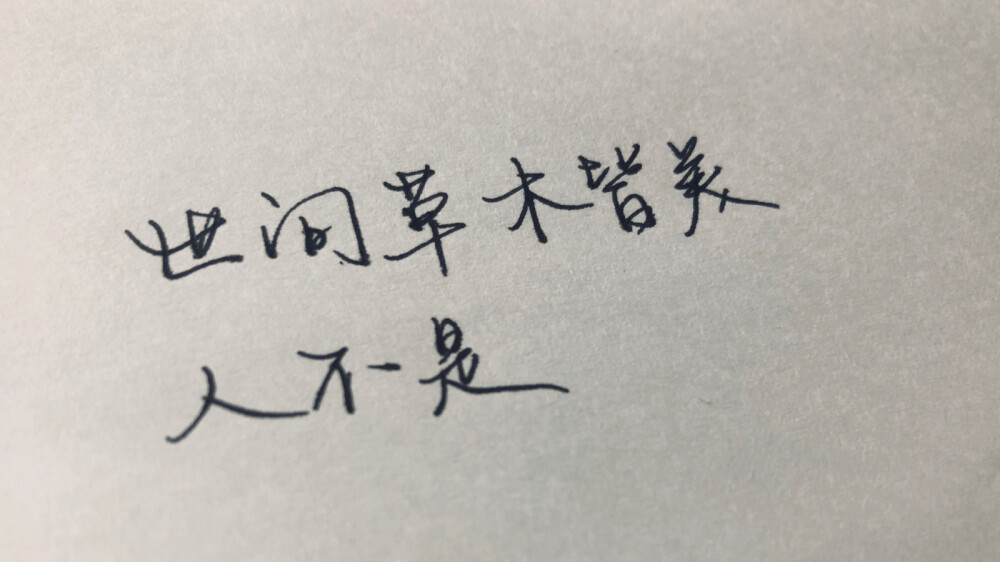 世间草木皆美
人不是